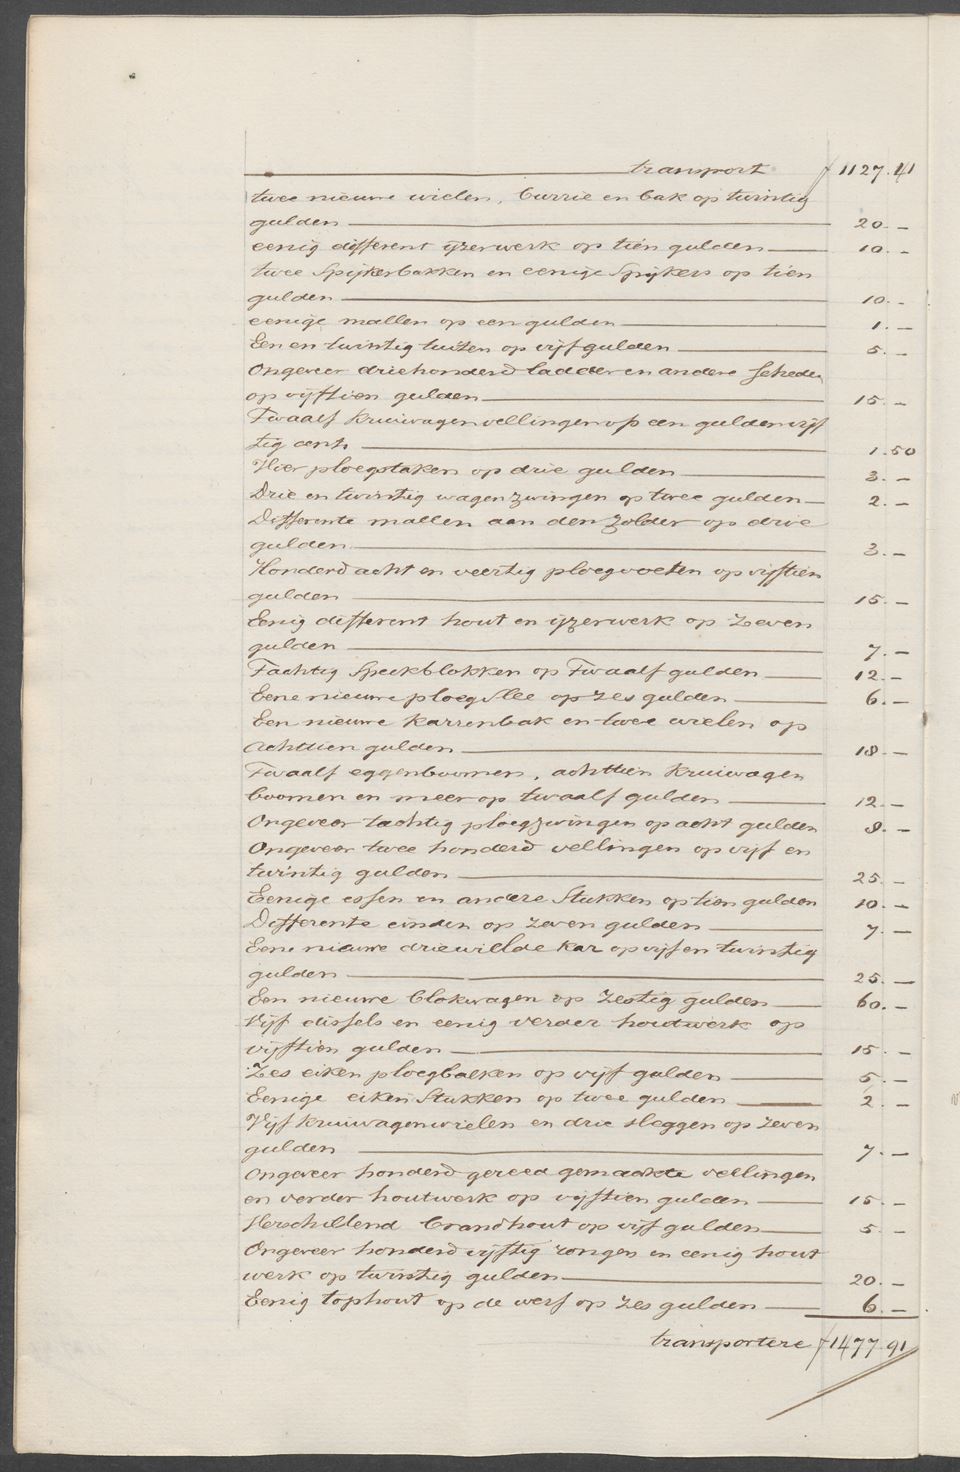 transport f 1127.41
twee nieuwe wielen, burrie en bak op twintig
gulden 20.–
eenig different ijzerwerk op tien gulden 10.–
twee Spijkerbakken en eenige Spijkers op tien
gulden 10.–
eenige mallen op een gulden 1.–
Een en twintig tuiten op vijf gulden 5.–
Ongeveer driehonderd ladder en andere Scheden
op vijftien gulden 15.–
Twaalf kruiwagenvellingen op een gulden vijf
tig cent 1.50
Vier ploegstaken op drie gulden 3.–
Drie en twintig wagenzwingen op twee gulden 2.–
Differente mallen aan den zolder op drie
gulden 3.–
Honderd acht en veertig ploegvoeten op vijftien
gulden 15.–
Eenig different hout en ijzerwerk op zeven
gulden 7.–
Tachtig Speekblokken op Twaalf gulden 12.–
Eene nieuwe ploegslee op zes gulden 6.–
Een nieuwe karrenbak en twee wielen op
Achttien gulden 18.–
Twaalf eggenboomen, achttien kruiwagen
boomen en meer op twaalf gulden 12.–
Ongeveer tachtig ploegzwingen op acht gulden 8.–
Ongeveer twee honderd vellingen op vijf en
twintig gulden 25.–
Eenige essen en andere Stukken op tien gulden 10.–
Differente einden op zeven gulden 7.–
Eene nieuwe driewielde kar op vijf en twintig
gulden 25.–
Een nieuwe blokwagen op zestig gulden 60.–
Vijf dissels en eenig verder houtwerk op
vijftien gulden 15.–
Zes eiken ploegbalken op vijf gulden 5.–
Eenige eiken Stukken op twee gulden 2.–
Vijf kruiwagenwielen en drie sleggen op zeven
gulden 7.–
Ongeveer honderd gereed gemaakte vellingen
en verder houtwerk op vijftien gulden 15.–
Verschillend brandhout op vijf gulden 5.–
Ongeveer honderd vijftig rongen en eenig hout
werk op twintig gulden 20.–
Eenig tophout op de werf op zes gulden 6.–
transportere f 1477.91